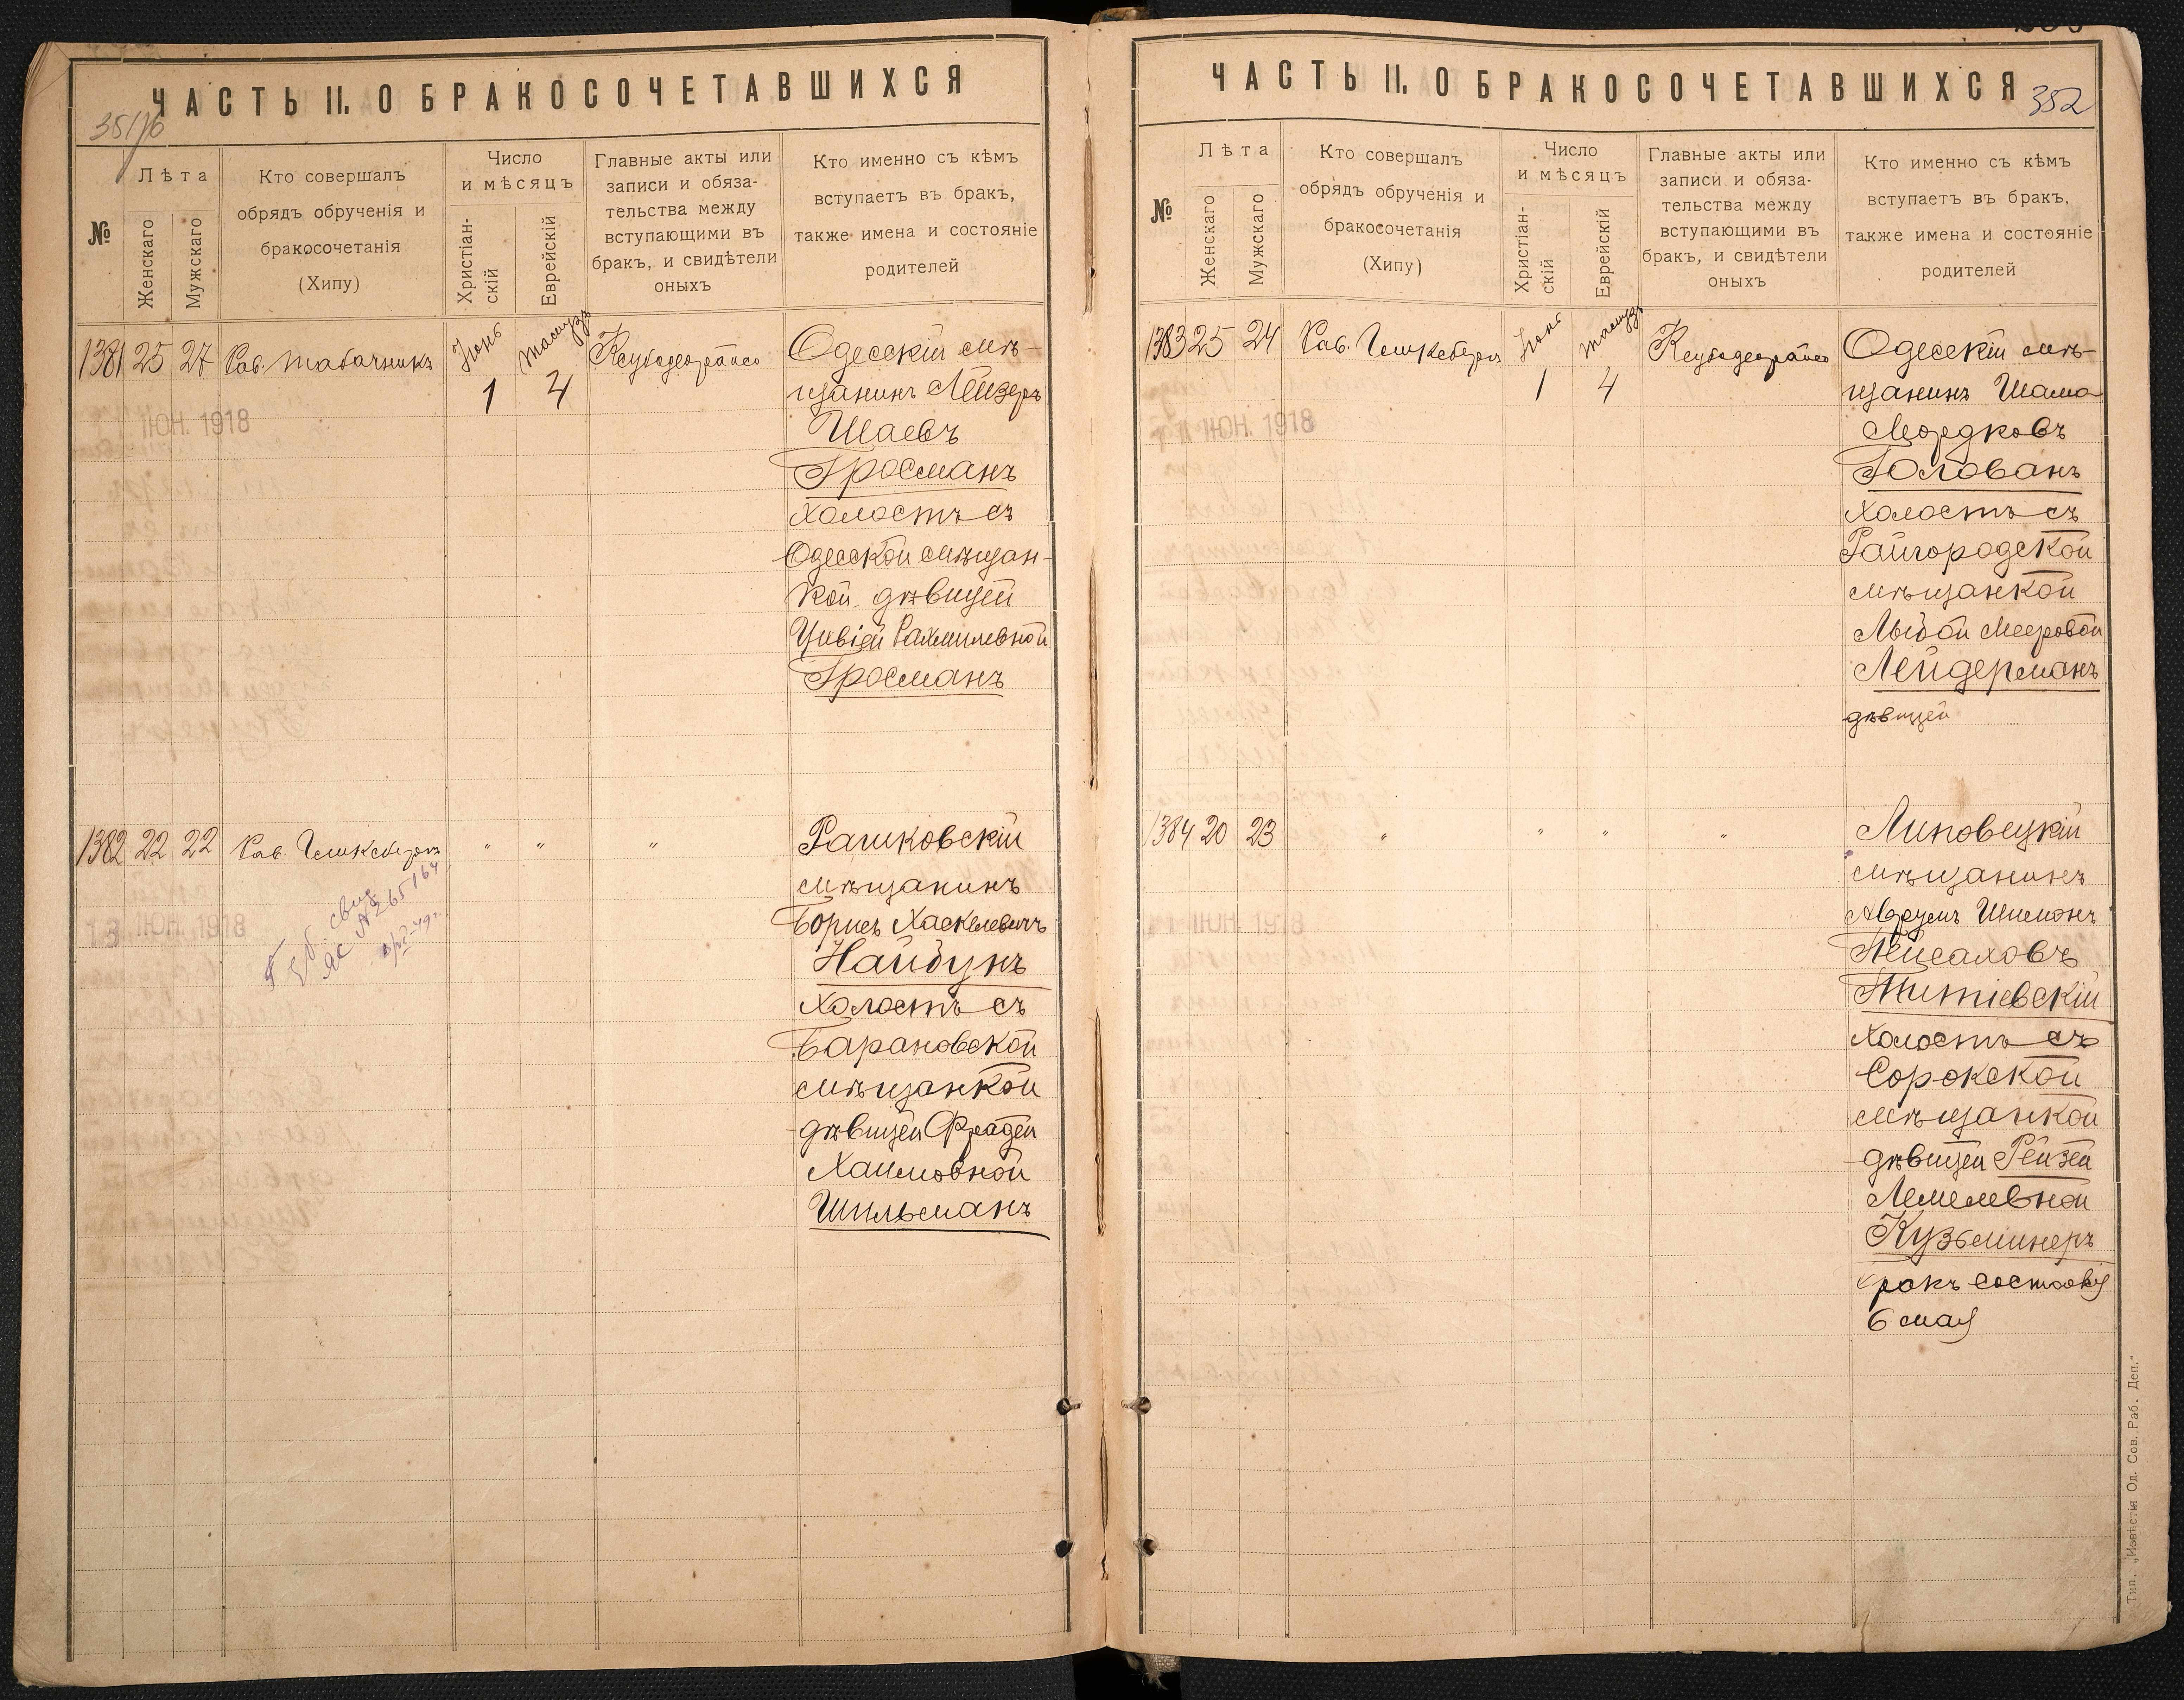 ЧАСТЬ II. О БРАКОСОЧЕТАВШИХСЯ
№
Лѣта
Женскаго
Мужскаго
Кто совершалъ
обрядъ обрученія и
бракосочетанія
(Хипу)
Число
и мѣсяцъ
Христіан-
скій
Еврейскій
Главные акты или
записи и обяза-
тельства между
вступающими въ
бракъ, и свидѣтели
оныхъ
Кто именно съ кѣмъ
вступаетъ въ бракъ,
также имена и состояніе
родителей
1381 25 27 Рав. Табачникъ Іюнь Тамузъ
1 4
ІЮН. 1918
Одесскій мѣ-
щанинъ Лейзеръ
Шаевъ
Гросманъ
холостъ съ
Одесской мѣщан-
кой дѣвицей
Цивіей Рахмилевной
Гросманъ
1382 22 22 Рав. " " "
13 ІЮН. 1918
Рашковскій
мѣщанинъ
Борисъ Хаскелевичъ
Найдунъ
холостъ съ
Барановской
мѣщанкой
дѣвицей Фрадей
Хаимовной
Шильманъ
ЧАСТЬ II. О БРАКОСОЧЕТАВШИХСЯ
352
№
Лѣта
Женскаго
Мужскаго
Кто совершалъ
обрядъ обрученія и
бракосочетанія
(Хипу)
Число
и мѣсяцъ
Христіан-
скій
Еврейскій
Главные акты или
записи и обяза-
тельства между
вступающими въ
бракъ, и свидѣтели
оныхъ
Кто именно съ кѣмъ
вступаетъ въ бракъ,
также имена и состояніе
родителей
1383 25 24 Рав. Іюнь Тамузъ
1 4
ІЮН. 1918
Одесскій мѣ-
щанинъ Шама
Мордковъ
Голованъ
холостъ съ
Райгородской
мѣщанкой
Мееровой
Лейдерманъ
дѣвицей
1384 20 23 " " " "
ІЮН. 1918
Липовецкій
мѣщанинъ
Аврумъ Шимонъ
Пейсаховъ
Титіевскій
холостъ съ
Сорокской
мѣщанкой
дѣвицей Рейзей
Лемелевной
Кузьминеръ
бракъ состоявс
6 мая
Тип. „Извѣстія Од. Сов. Раб. Деп.“